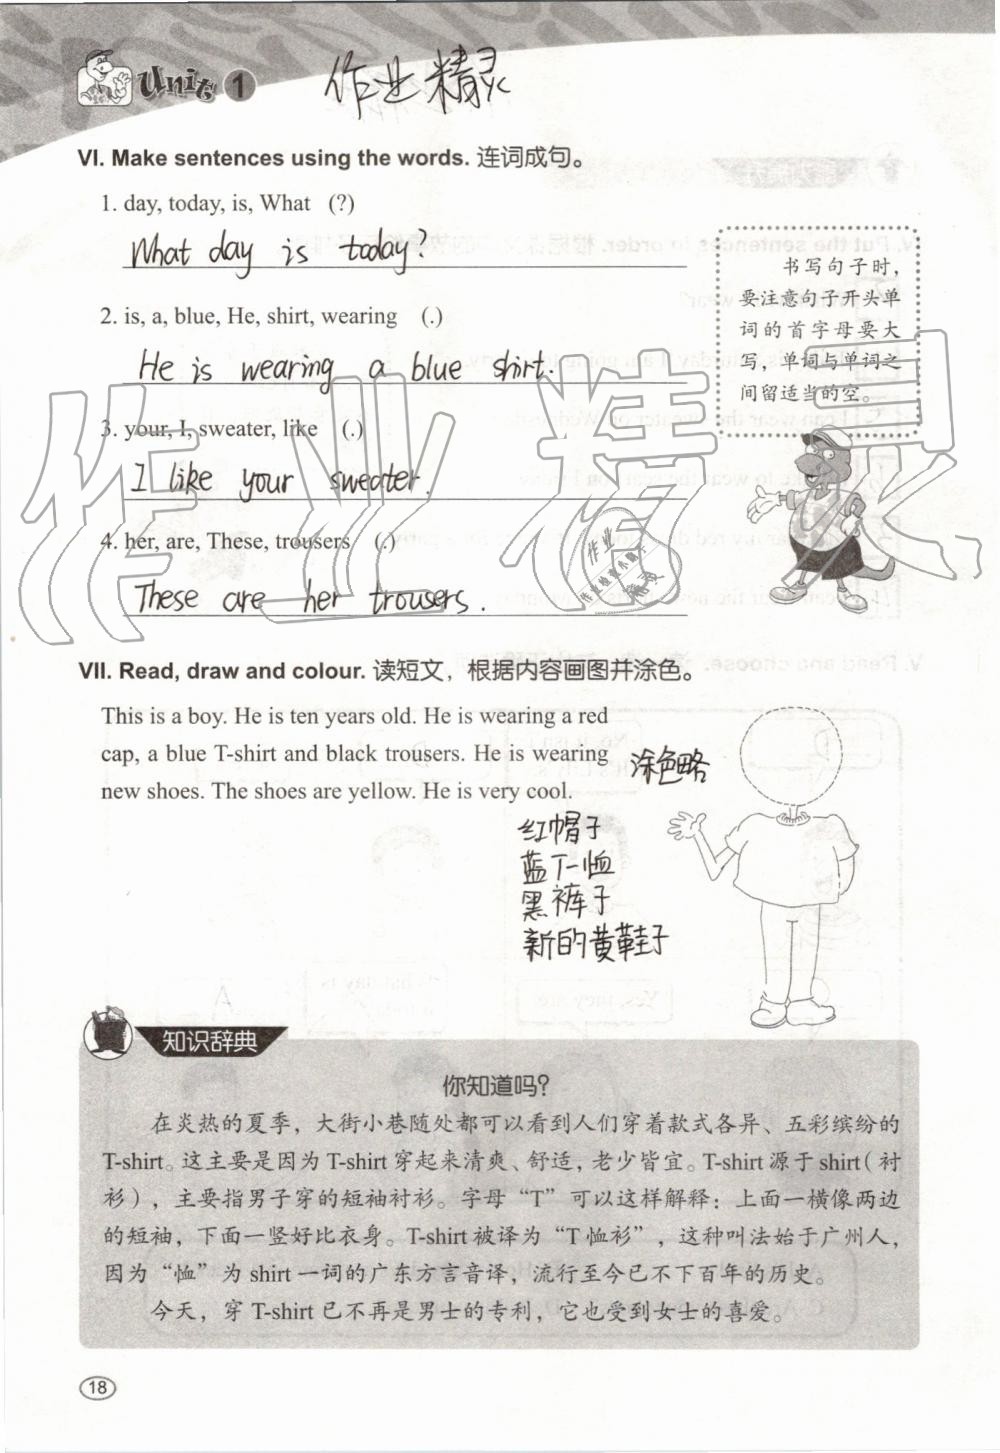 Unit 1
作业精灵
VI. Make sentences using the words. 连词成句。
1. day, today, is, What (?)
What day is today?
2. is, a, blue, He, shirt, wearing (.)
He is wearing a blue shirt.
3. your, I, sweater, like (.)
I like your sweater.
4. her, are, These, trousers (.)
These are her trousers.
书写句子时，
要注意句子开头单
词的首字母要大
写，单词与单词之
间留适当的空。
作业精灵
VII. Read, draw and colour. 读短文，根据内容画图并涂色。
This is a boy. He is ten years old. He is wearing a red
cap, a blue T-shirt and black trousers. He is wearing
new shoes. The shoes are yellow. He is very cool.
涂色略
红帽子
蓝T-恤
黑裤子
新的黄鞋子
知识辞典
你知道吗？
在炎热的夏季，大街小巷随处都可以看到人们穿着款式各异、五彩缤纷的
T-shirt。这主要是因为 T-shirt 穿起来清爽、舒适，老少皆宜。T-shirt 源于 shirt（衬
衫），主要指男子穿的短袖衬衫。字母“T”可以这样解释：上面一横像两边
的短袖，下面一竖好比衣身。T-shirt 被译为“T 恤衫”，这种叫法始于广州人，
因为“恤”为 shirt 一词的广东方言音译，流行至今已不下百年的历史。
今天，穿 T-shirt 已不再是男士的专利，它也受到女士的喜爱。
18